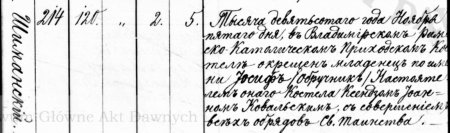 Шиманскій.
214 120. „ 2. 5. Тысяча девятьсотаго года Ноября
пятаго дня, въ Владимірскомъ Рим-
ско Католическомъ Приходскомъ Ко-
стелѣ окрещенъ младенецъ по име-
ни Іосифъ /Обручникъ/ Настояте-
лемъ онаго Костела Ксендзомъ Іоан-
номъ Ковальскимъ, съ совершеніемъ
всѣхъ обрядовъ Св. Таинства. —
Główne Akt Dawnych